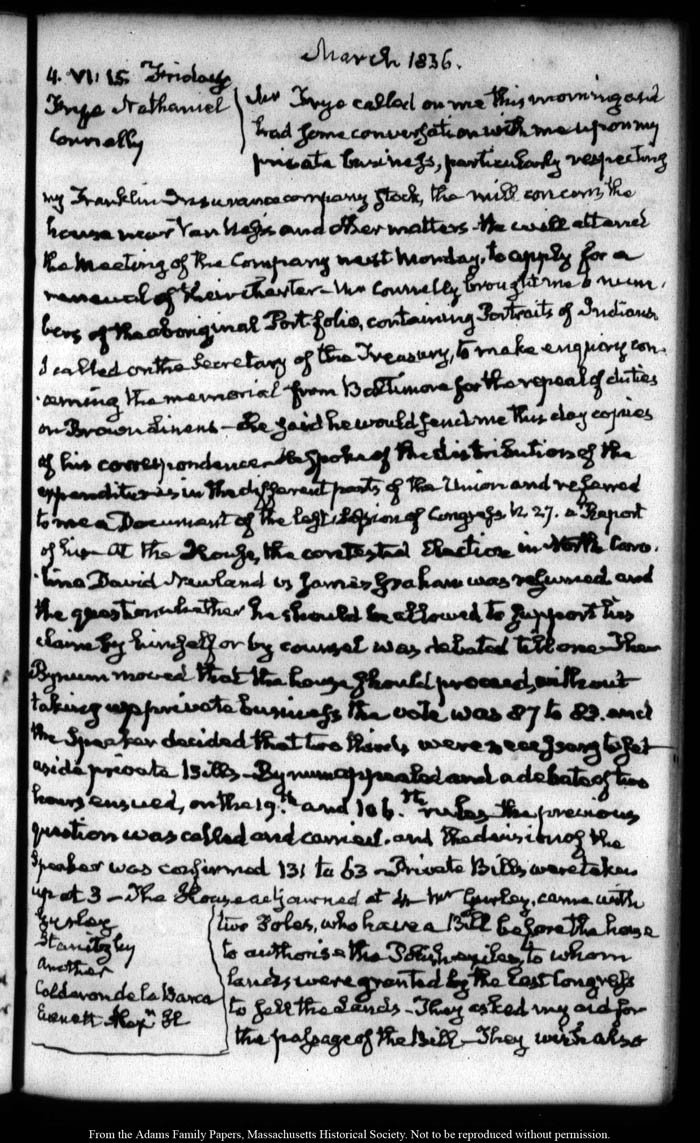 March 1836.
4. VI:15. Friday
Frye Nathaniel
Connelly
Mr Frye called on me this morning and
had some conversation with me upon my
private business, particularly respecting
my Franklin Insurance company stock, the mill concern, the
house near Van Ness's and other matters. He will attend
the Meeting of the Company next Monday, to apply for a
renewal of their charter - Mr Connelly brought me 6 num-
bers of the aboriginal Port-folio, containing Portraits of Indians
I called on the Secretary of the Treasury, to make enquiry con-
-cerning the memorial from Baltimore for the repeal of duties
on Brown Linens - He said he would send me this day copies
of his correspondence. He spoke of the distribution of the
expenditures in the different parts of the Union and referred
to me a Document of the last Session of Congress, N. 27. a Report
of his - At the House, the contested Election in North Caro-
-lina David Newland vs James Graham was resumed and
the question whether he should be allowed to support his
claim by himself or by counsel was debated till one - Then
Bynum moved that the house should proceed, without
taking up private business the vote was 87 to 83. and
the Speaker decided that two thirds were necessary to set
aside private Bills - Bynum appealed and a debate of two
hours ensued, on the 19.th and 106.th rules - the previous
question was called and carried. and the decision of the
Speaker was confirmed 131 to 63 - Private Bills were taken
up at 3 - The House adjourned at 4 - Mr Gurley, came with
Gurley
another
Calderon de la Barca
Everett Alexr H
two Poles, who have a Bill before the house
to authorise the Polish exiles, to whom
lands were granted by the last Congress
to sell the Lands - They asked my aid for
the passage of the Bill - They wish also
From the Adams Family Papers, Massachusetts Historical Society. Not to be reproduced without permission.